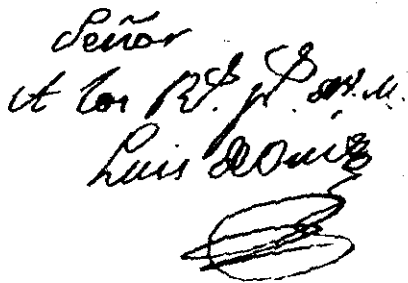 Señor
A los R.^s p.^s de V.M.
Luis de Onis